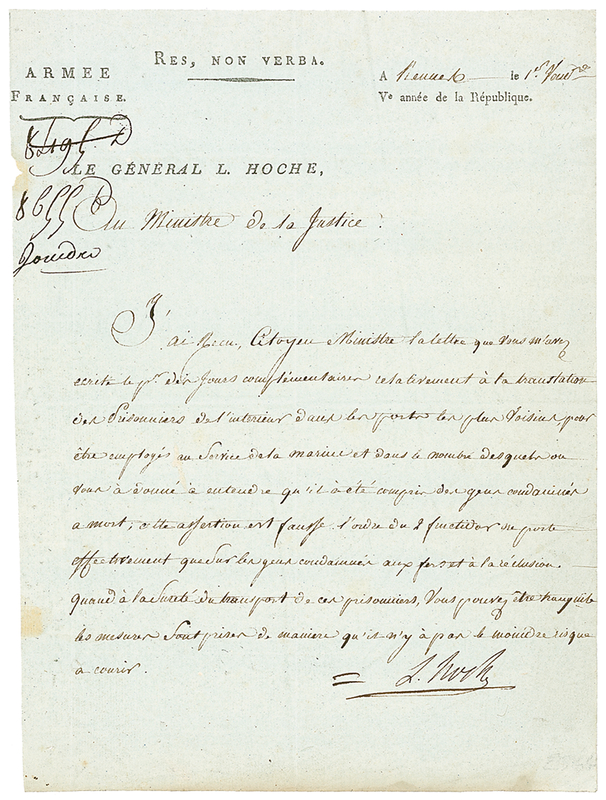 RES, NON VERBA.
ARMÉE
FRANÇAISE.
A Rennes le 1er Vendre
Ve année de la République.
LE GÉNÉRAL L. HOCHE,
8655
Joindre
Au Ministre de la Justice.
J'ai Recu, Citoyen Ministre la lettre que vous m'avez
ecrite le pr. des Jours complémentaires relativement à la translation
des Prisonniers de l'interieur dans les ports les plus Voisins, pour
être employés au Service de la marine et dans le nombre desquels on
vous à donné à entendre qu'il à été compris des gens condamnés
a mort; cette assertion est fausse. l'ordre du 8 fructidor ne porte
effectivement que sur les gens condamnés aux fers et à la réclusion.
quand à la Sureté du transport de ces prisonniers, Vous pouvez être tranquille
les mesures Sont prises de maniere qu'il n'y à pas le moindre risque
à courir.
L. Hoche